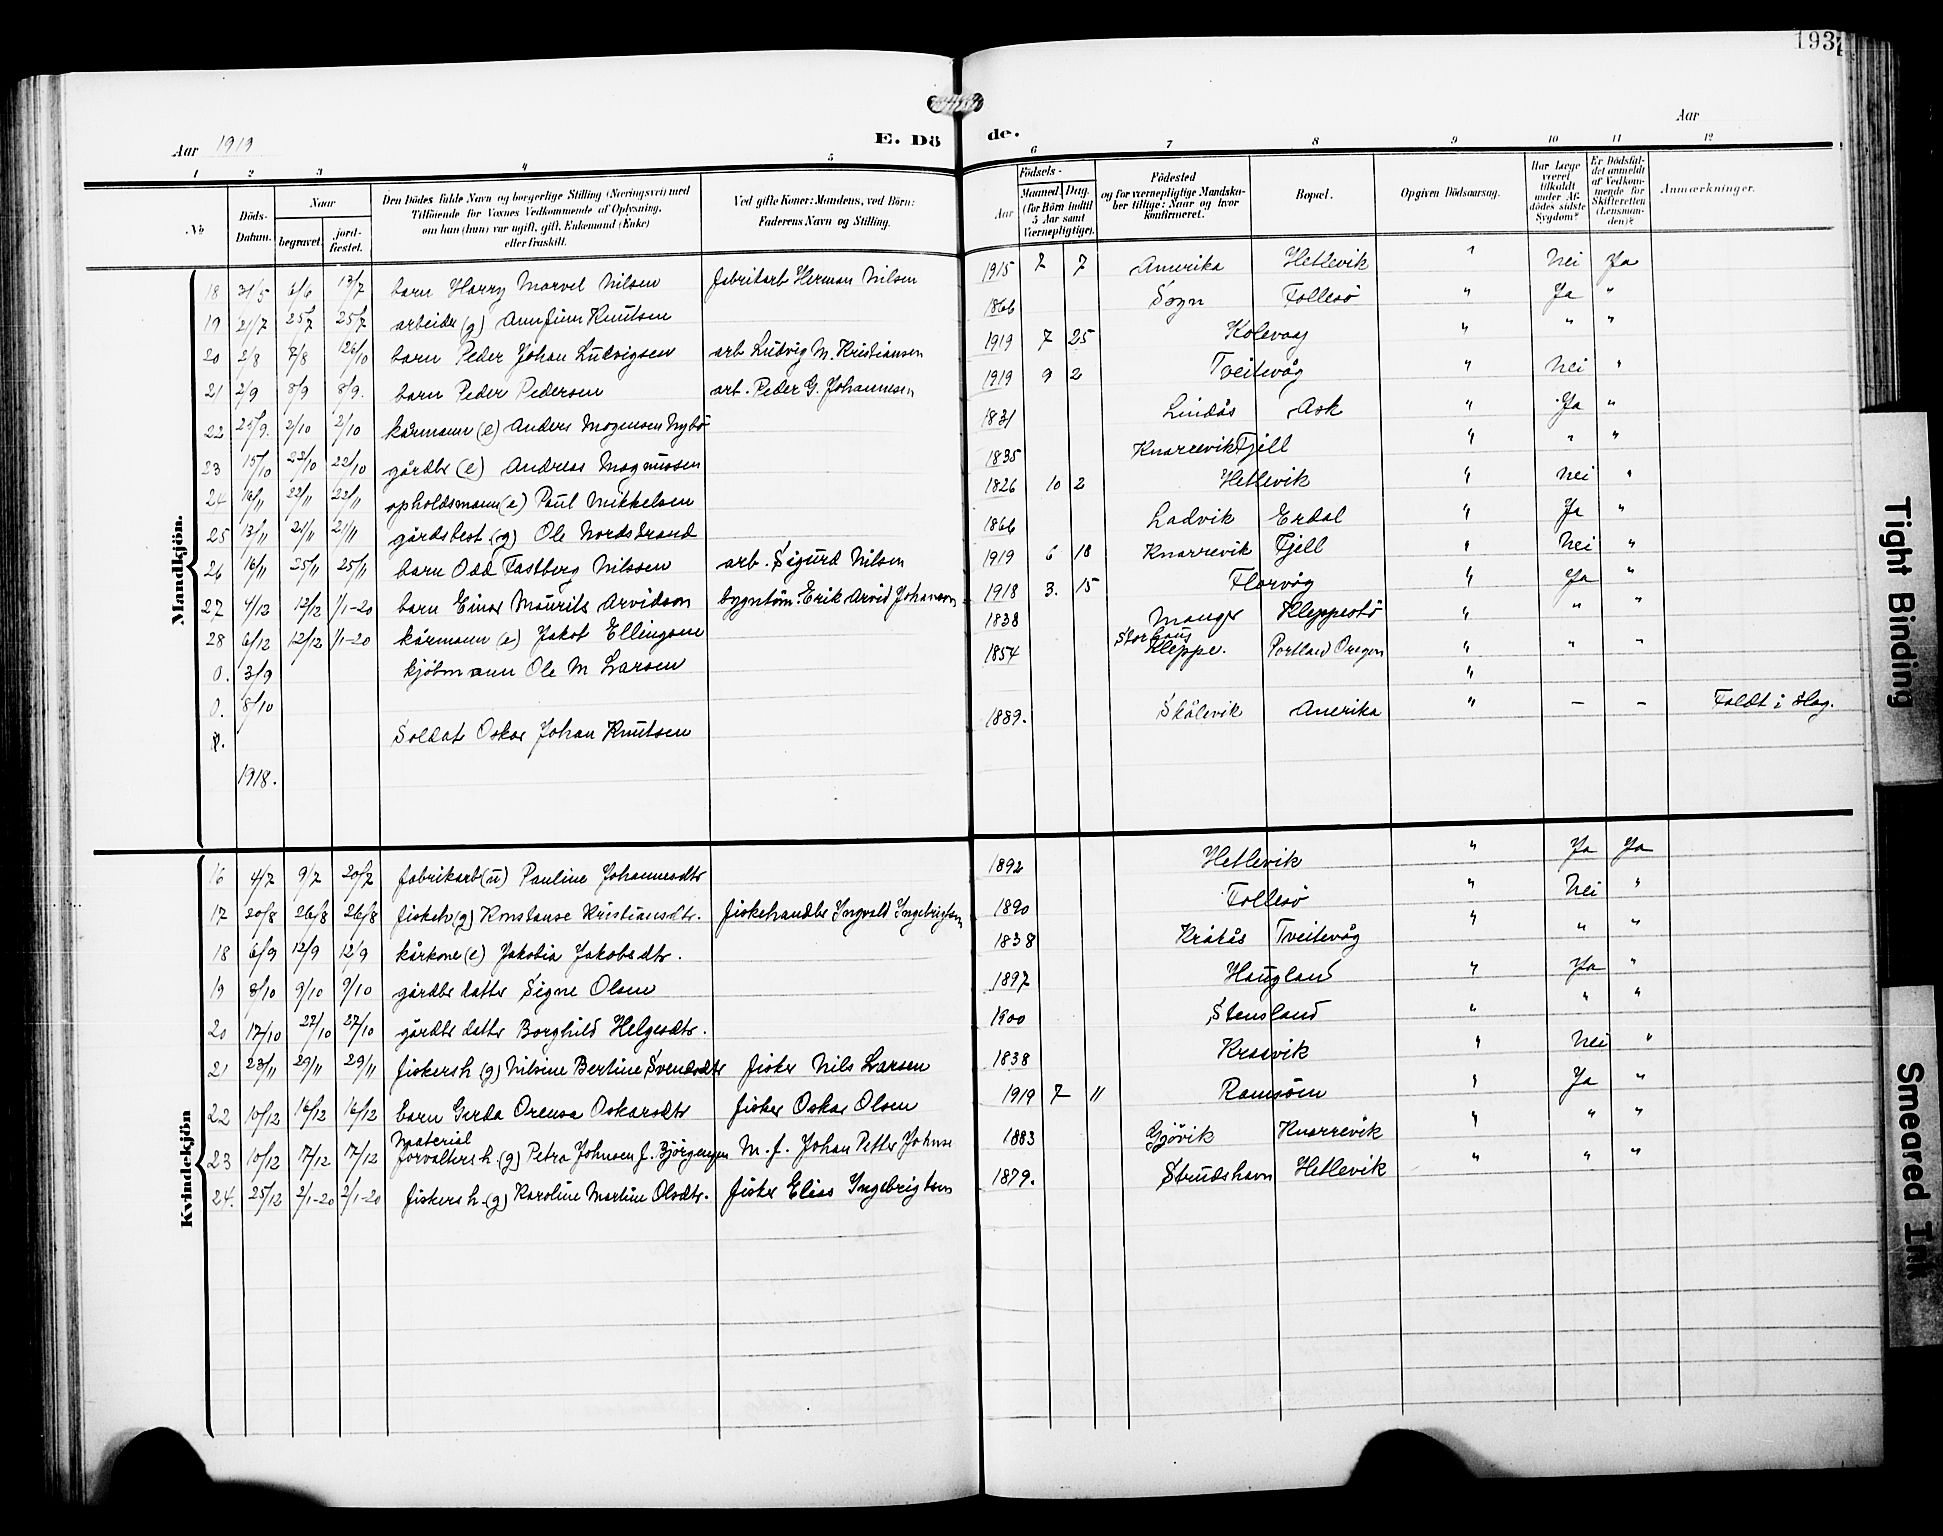 193
Aar 1919
E. Dö
de.
Aar
1 2 3 4 5
6 7 8 9 10 11 12
№
Döds-Datum.
Naar
begravet.
jord-fæstet.
Den Dödes fulde Navn og borgerlige Stilling (Næringsvei) med
Tilföiende for Voxnes Vedkommende af Oplysning,
om han (hun) var ugift, gift, Enkemand (Enke)
eller fraskilt.
Ved gifte Koner: Mandens, ved Börn:
Faderens Navn og Stilling.
Födsels-
Aar
Maaned. Dag.
(for Börn indtil
5 Aar samt
Værnepligtige).
Födested
og for værnepligtige Mandska-
ber tillige: Naar og hvor
konfirmeret.
Bopæl.
Opgiven Dödsaarsag.
Har læge
været
tilkaldt
under Af-
dödes sidste
Sygdom?
Er Dödsfal-
det anmeldt
af Vedkom-
mende for
Skifteretten
(Lensman-
den)?
Anmærkninger.
Mandkjön.
18 31/5 6/6 13/7 barn Harry Marvel Nilsen fabrikarb Herman Nilsen 1915 7 7 Amerika Hetlevik " Nei Ja
19 21/7 25/7 25/7 arbeider (g) Annfinn Knutsen 1866 Sogn Follesö " Ja "
20 2/8 7/8 126/10 barn Peder Johan Ludvigsen arb Ludvig M. Kristiansen 1919 7 25 Kolevaag " " "
21 2/9 8/9 8/9. barn Peder Pedersen art. Peder G. Johannesen 1919 9 2 Tveitevåg " Nei "
22 25/9. 2/10 2/10 kårmann (e) Anders Mogensen Nybö 1831 Lindås Ask " Ja "
23 15/10 22/10 22/10 gårdbr (e) Andreas Magnussen 1835 Knarrevik Fjell " " "
24 16/11 22/11 22/11 opholdsmann (e) Paul Mikkelsen 1826 10 2 Hetlevik " Nei "
25 13/11 21/11 21/11 gårdsbest (g) Ole Nordstrand 1866 Ladvik Erdal " Ja "
26 16/11 25/11 25/11 barn Odd Fastberg Nilssen arb. Sigurd Nilsen 1919 6 18 Knarrevik Fjell " Nei "
27 4/12 12/12 1/1-20 barn Einar Maurits Arvidson bygntöm. Erik Arvid Johanson 1918 3. 15 Florvåg " Ja "
28 6/12 12/12 1/1-20 kårmann (e) Jakob Ellingsen 1838 Manger Kleppestö " " "
0. 3/9 kjöbmann Ole M Larsen 1854 Storhaug Kleppe. Portland Oregon " " "
0. 8/10 "
Soldat Oskar Johan Knutsen 1889. Skålevik Amerika " – – Faldt i Slag.
1918.
Kvindekjön
16 4/7 9/7 20/7 fabrikarb (u) Pauline Johannesdtr 1892 Hetlevik " Ja Ja
17 20/8 26/8 26/8 fiskeh (g) Konstanse Kristiansdtr. fiskehandler Ingvald Ingebrigtsen 1890 Follesö " Nei "
18 6/9 12/9 12/9 kårkone (e) Jakobia Jakobsdtr. 1838 Kråkås Tveitevåg " " "
19 8/10 9/10 9/10 gårdbr datter Signe Olsen 1897 Haugland " Ja "
20 17/10 27/10 27/10 gårdbr datter Borghild Helgesdtr. 1900 Stensland " " "
21 23/11 29/11 29/11 fiskersh (g) Nilsine Bertine Svendsdtr fisker Nils Larsen 1838 Krosvik " Nei "
22 10/12 16/12 16/12 barn Gerda Orensa Oskarsdtr fisker Oskar Olsen 1919 7 11 Ramsöen " Ja "
23 10/12 17/12 17/12 Material
forvaltersh (g) Petra Johnsen f. Björgensen M. f. Johan Petter Johnse 1883 Gjövik Knarrevik " " "
24. 25/12 2/1-20 2/1-20 fiskersh (g) Karoline Martine Olsdtr. fisker Elias Ingebrigtsen 1879. Strudshavn Hetlevik " " "
Tight Binding
Smeared Ink